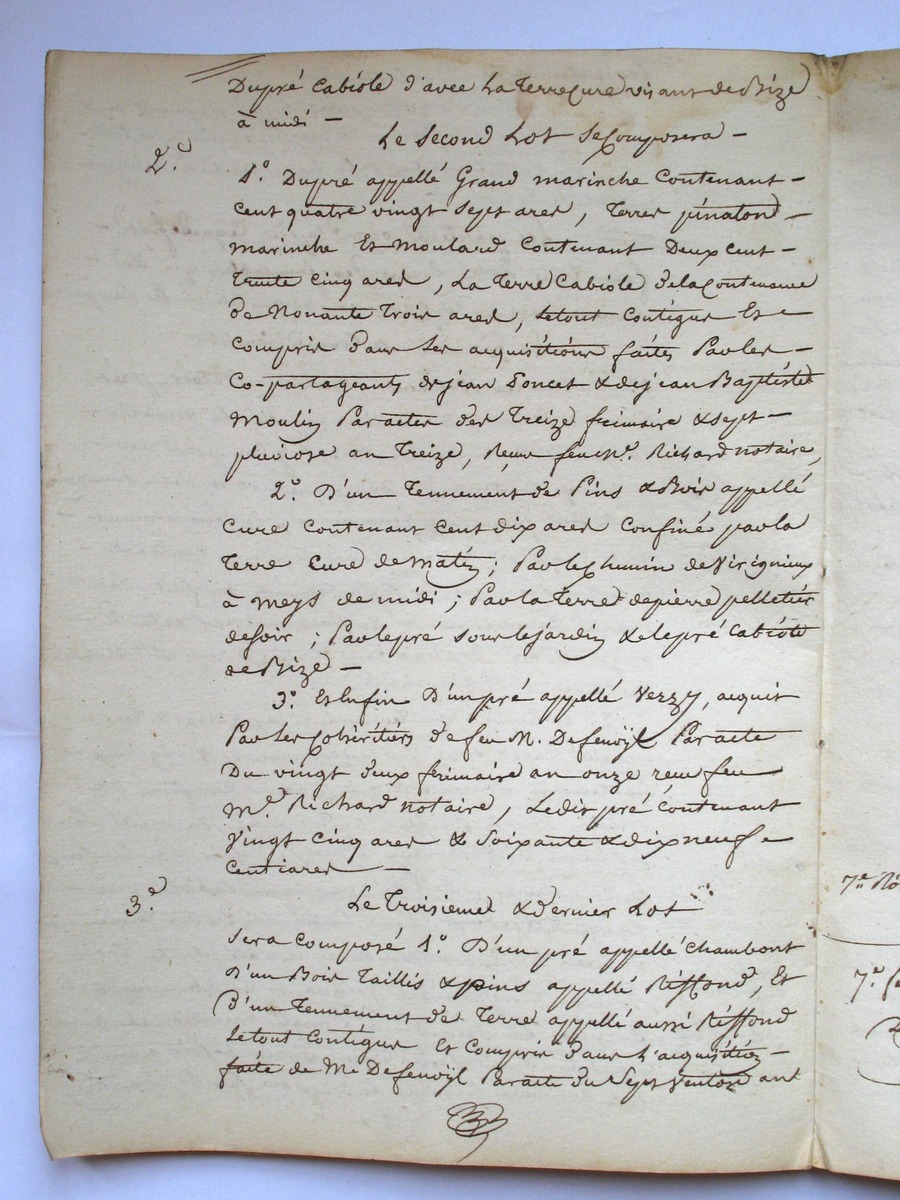 Dupré Cabiole d'avec La Terre Cure visant de Bize
à midi —
Le Second Lot Se Composera —
2.e
1.o Dupré appellé Grand marinche Contenant —
Cent quatre vingt Sept ares, Terres pinaton —
marinche Et moulard Contenant Deux cent —
Trente cinq ares, La Terre Cabiole de la Contenance
de Nonante Trois ares, Le tout Contigue Et
Compris dans Les acquisitions faites Par les —
Co-partageants de jean Poncet & de jean Baptiste
Moulin Par actes des Treize frimaire & Sept —
pluviose an Treize, Reçus feu M.e Richard notaire,
2.o D'un Tennement de Pins & Bois appellé
Cure contenant Cent dix ares Confiné par la
Terre Cure de matin; Par le Chemin de Virigneux
à meys de midi; Par la Terre de pierre pelletier
de soir; Par le pré sous le jardin & le pré Cabiole
de Bize —
3.o Et Enfin D'un pré appellé Verzy, acquis
Par Les Cohéritiers de feu M. Defenoÿl Par acte
Du vingt deux frimaire an onze reçu feu
M.e Richard notaire, Ledit pré contenant
Vingt Cinq ares & Soixante & dix neuf
Centiares —
3.e
Le Troisieme & Dernier Lot
Sera composé 1.o D'un pré appellé Chambont
D'un Bois Taillis & pins appellé Riffond, Et
D'un Tennement de Terre appellé aussi Riffond
Le tout Contigue Et Compris dans L'acquisition —
faite de Mr Defenoÿl Par acte du Sept Ventose ant
7.e
7.e